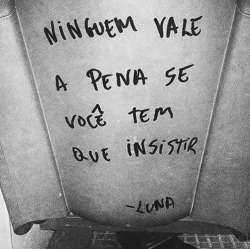 NINGUEM VALE
A PENA SE
VOCÊ TEM
QUE INSISTIR
-LUNA